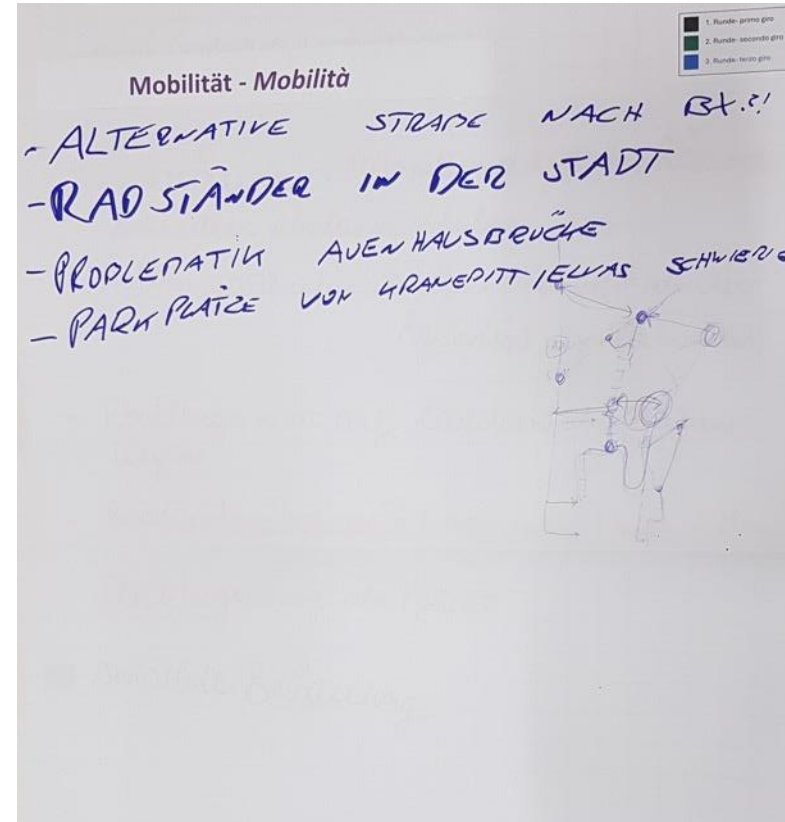 1. Runde- primo giro
2. Runde- secondo giro
3. Runde- terzo giro
Mobilität - Mobilità
- ALTERNATIVE STRAßE NACH BX.?!
- RADSTÄNDER IN DER STADT
- PROBLEMATIK AUENHAUSBRÜCKE
- PARKPLÄTZE VON KRANEBITT / ELVAS